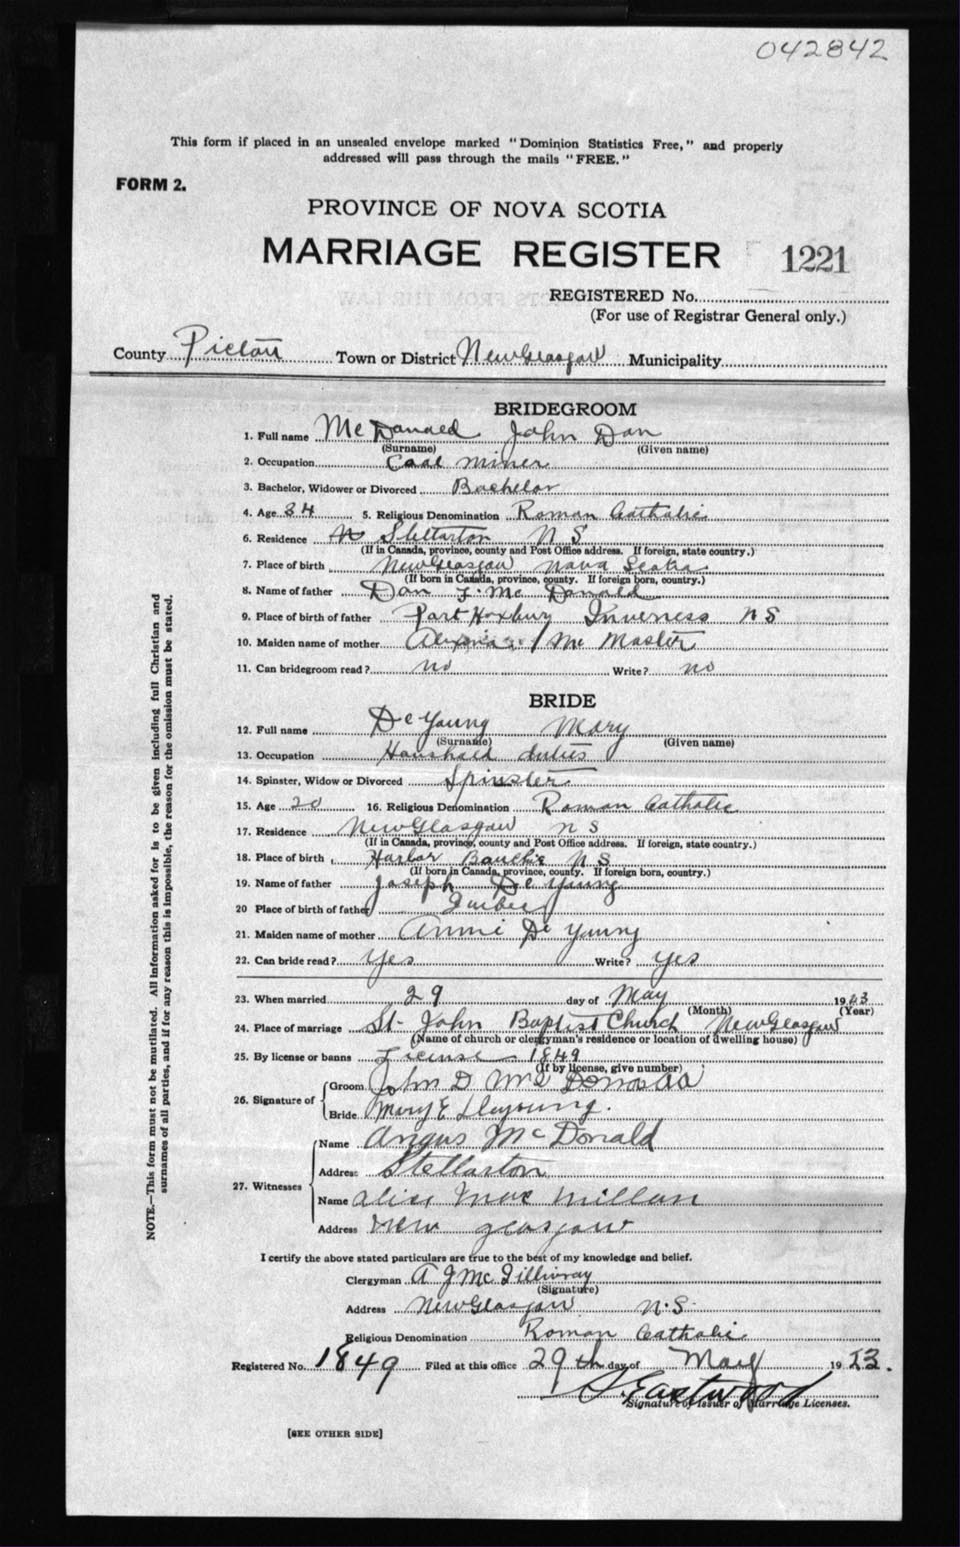 042842
This form if placed in an unsealed envelope marked "Dominion Statistics Free," and properly
addressed will pass through the mails "FREE."
FORM 2.
PROVINCE OF NOVA SCOTIA
MARRIAGE REGISTER 1221
REGISTERED No.
(For use of Registrar General only.)
County Pictou Town or District New Glasgow Municipality
BRIDEGROOM
1. Full name McDonald John Dan
(Surname) (Given name)
2. Occupation Coal Miner
3. Bachelor, Widower or Divorced Bachelor
4. Age 34 5. Religious Denomination Roman Catholic
6. Residence Stellarton N S
(If in Canada, province, county and Post Office address. If foreign, state country.)
7. Place of birth New Glasgow Nova Scotia
(If born in Canada, province, county. If foreign born, country.)
8. Name of father Dan F. Mc Donald
9. Place of birth of father Port Hoxbury Inverness N S
10. Maiden name of mother Mc Master
11. Can bridegroom read? no Write? no
BRIDE
12. Full name De Young Mary
(Surname) (Given name)
13. Occupation Household duties
14. Spinster, Widow or Divorced Spinster
15. Age 20 16. Religious Denomination Roman Catholic
17. Residence New Glasgow N S
(If in Canada, province, county and Post Office address. If foreign, state country.)
18. Place of birth Harbor Bouchie N S
(If born in Canada, province, county. If foreign born, country.)
19. Name of father Joseph De Young
20 Place of birth of father
21. Maiden name of mother Annie De Young
22. Can bride read? Yes Write? Yes
23. When married 29 day of May 1923
(Month) (Year)
24. Place of marriage St- John Baptist Church New Glasgow
(Name of church or clergyman's residence or location of dwelling house)
25. By license or banns License 1849
(If by license, give number)
26. Signature of Groom John D Mc Donald
Bride Mary E Deyoung.
27. Witnesses Name Angus McDonald
Address Stellarton
Name Alice Mac Millan
Address New Glasgow
I certify the above stated particulars are true to the best of my knowledge and belief.
Clergyman A J McGillivray
(Signature)
Address New Glasgow N.S.
Religious Denomination Roman Catholic
Registered No. 1849 Filed at this office 29th day of May 1923.
Eastwood
Signature of Issuer of Marriage Licenses.
[SEE OTHER SIDE]
NOTE.—This form must not be mutilated. All information asked for is to be given including full Christian and
surnames of all parties, and if for any reason this is impossible, the reason for the omission must be stated.